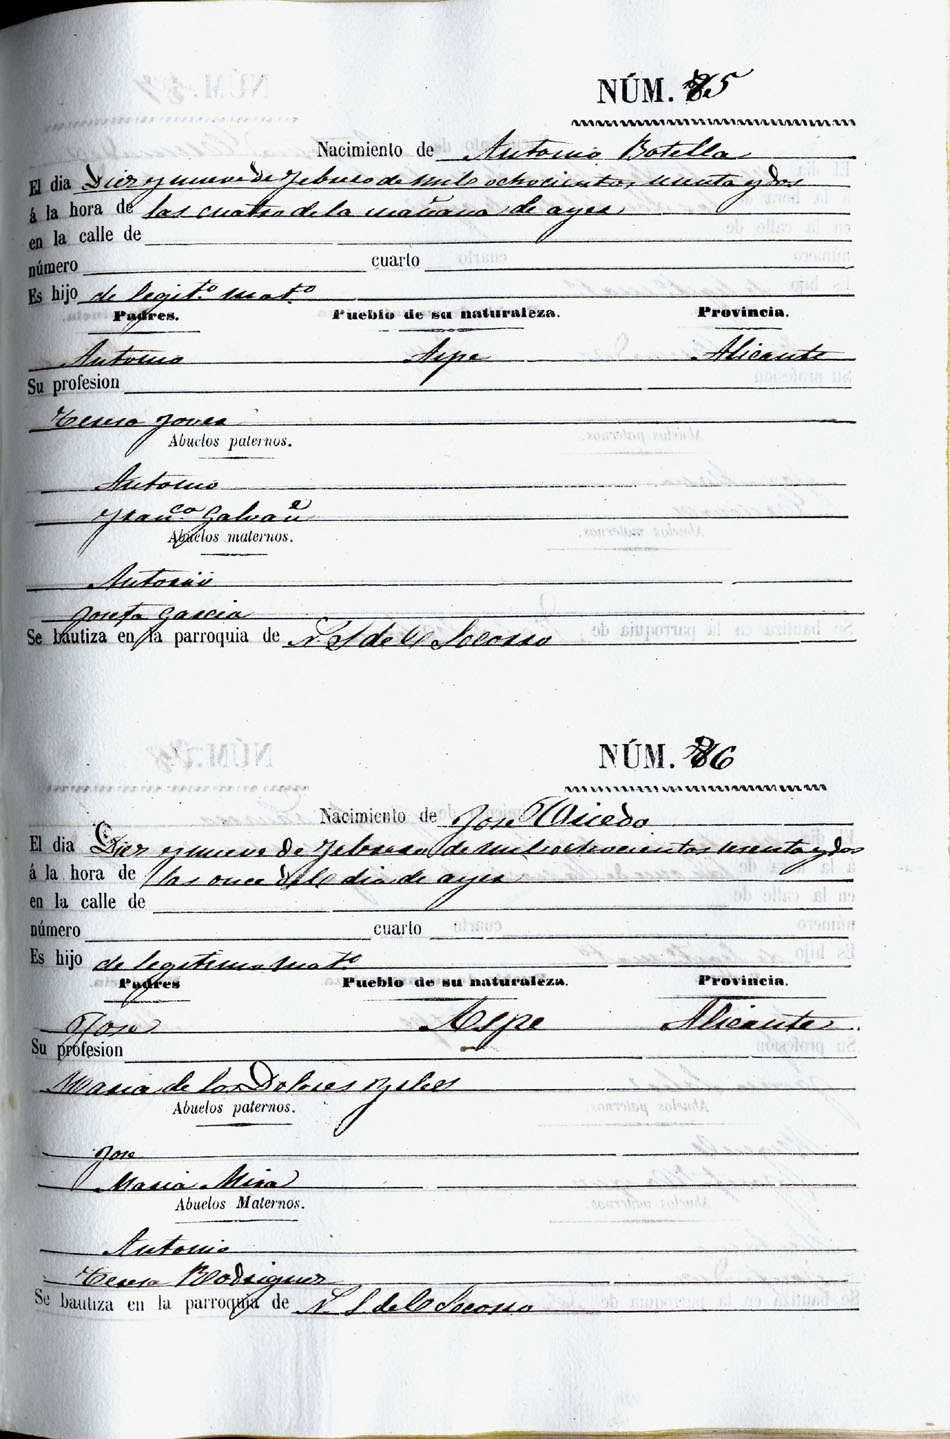 NÚM. 85
Nacimiento de Antonio Botella
El dia Diez y nueve de Febrero de mil ochocientos setenta y dos
á la hora de las cuatro de la mañana de ayer
en la calle de
número cuarto
Es hijo de legit.º mat.º
Padres. Pueblo de su naturaleza. Provincia.
Antonio Aspe Alicante
Su profesion
Teresa Jover
Abuelos paternos.
Antonio
Fran.ca Galvañ
Abuelos maternos.
Antonio
Josefa Garcia
Se bautiza en la parroquia de N. S. del Socorro
NÚM. 86
Nacimiento de Jose
El dia Diez y nueve de Febrero de mil ochocientos setenta y dos
á la hora de las once del dia de ayer
en la calle de
número cuarto
Es hijo de legitimo mat.º
Padres Pueblo de su naturaleza. Provincia.
Jose Aspe Alicante
Su profesion
Maria de los Dolores
Abuelos paternos.
Jose
Maria Mira
Abuelos Maternos.
Antonio
Teresa Rodriguez
Se bautiza en la parroquia de N. S. del Socorro